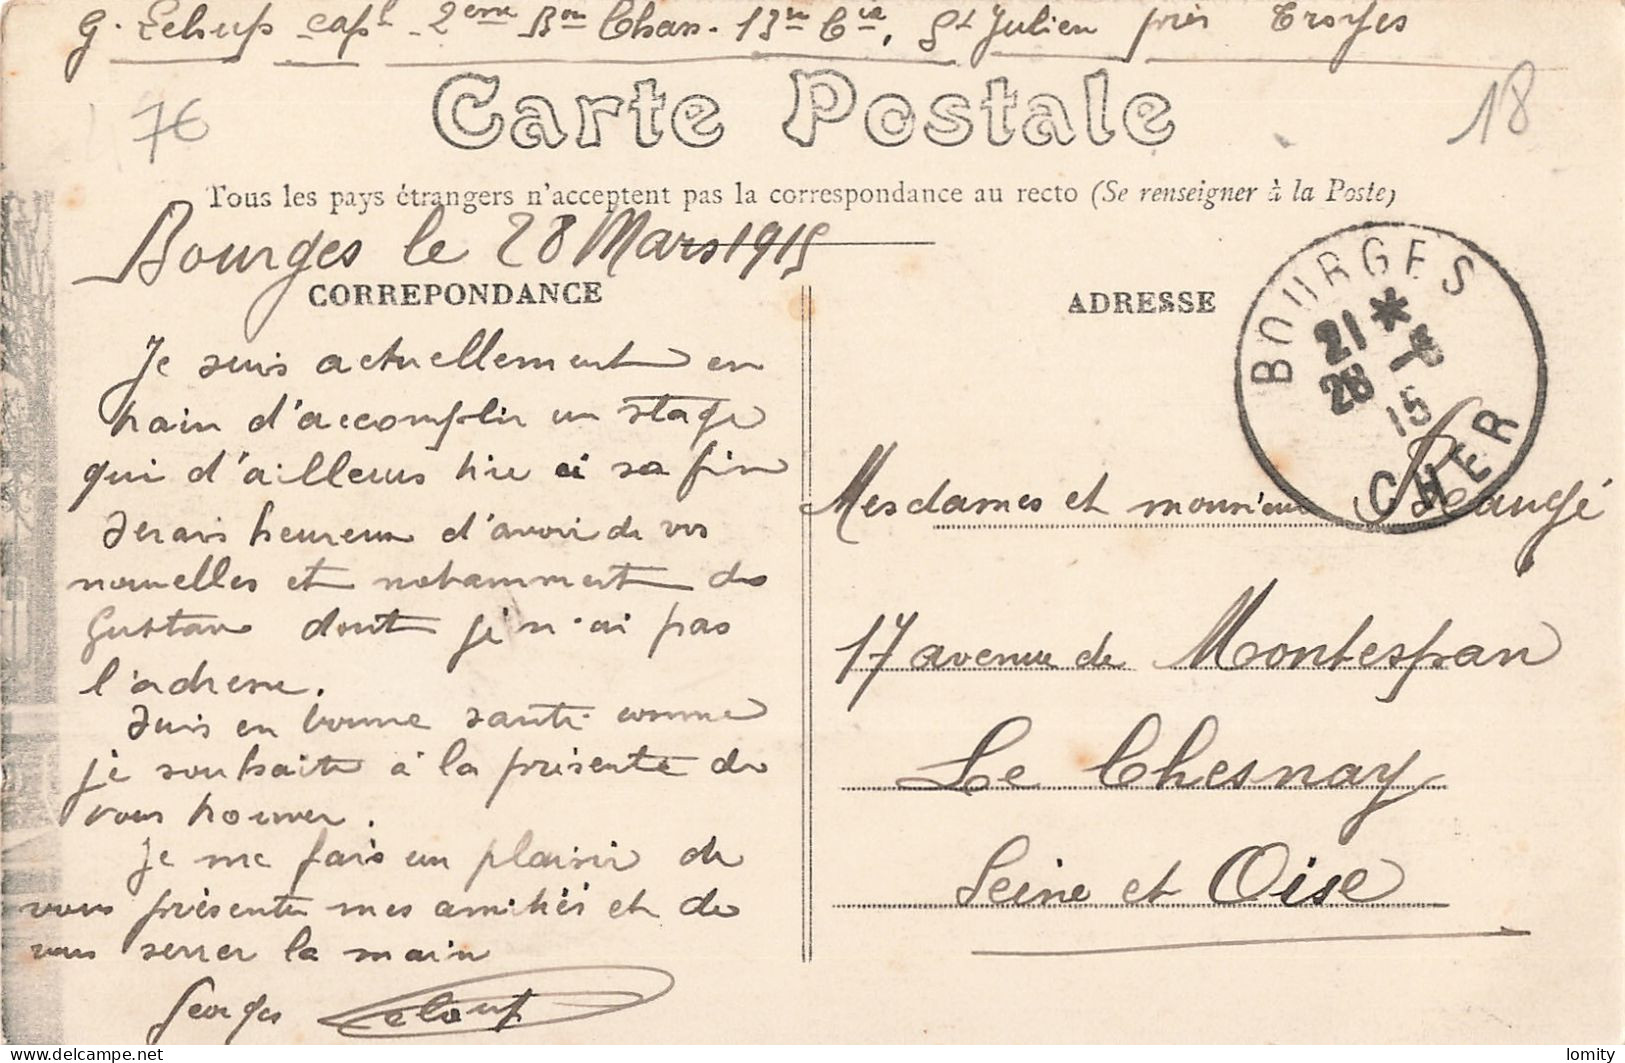 G. Echup cap^l - 2^eme B^on Chas. 13^me C^ie, S^t Julien près Troyes
76
18
Carte Postale
Tous les pays étrangers n'acceptent pas la correspondance au recto (Se renseigner à la Poste)
Bourges le 28 Mars 1915
CORREPONDANCE
Je suis actuellement en
train d'accomplir un stage
qui d'ailleurs tire à sa fin
Serais heureux d'avoir de vos
nouvelles et notamment de
Gustave dont je n'ai pas
l'adresse.
Suis en bonne santé comme
je souhaite à la présente de
vous trouver.
Je me fais un plaisir de
vous présenter mes amitiés et de
vous serrer la main
Georges
ADRESSE
BOURGES
21 *
28 -3
15
CHER
Mesdames et monsieur
17 avenue de Montespan
Le Chesnay
Seine et Oise
lomity